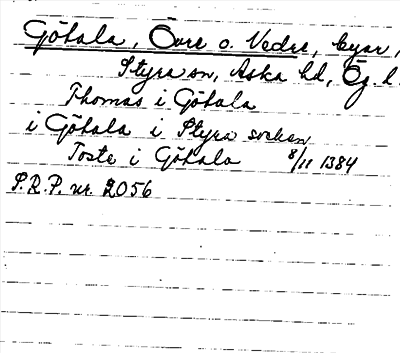 Götala, Övre o. Nedre, byar,
Styra sn, Aska hd, Ög. l.
Thomas i Götala
i Götala i Styra sochen
Toste i Götala 8/11 1384
P.R.P. nr. 2056